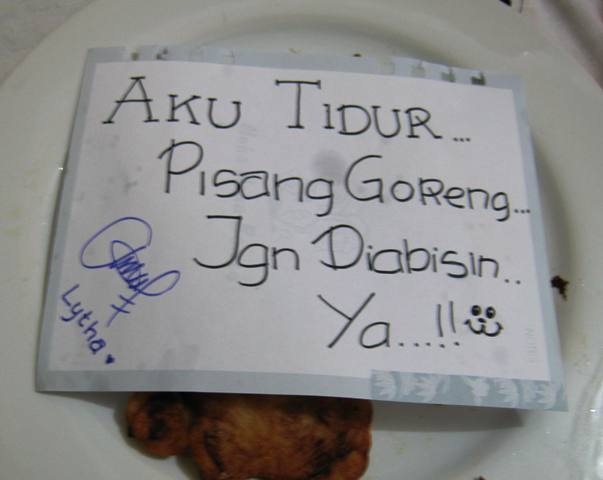 AKU TIDUR...
Pisang GoReng...
Jgn Diabisin..
Ya.....!!
Lytha